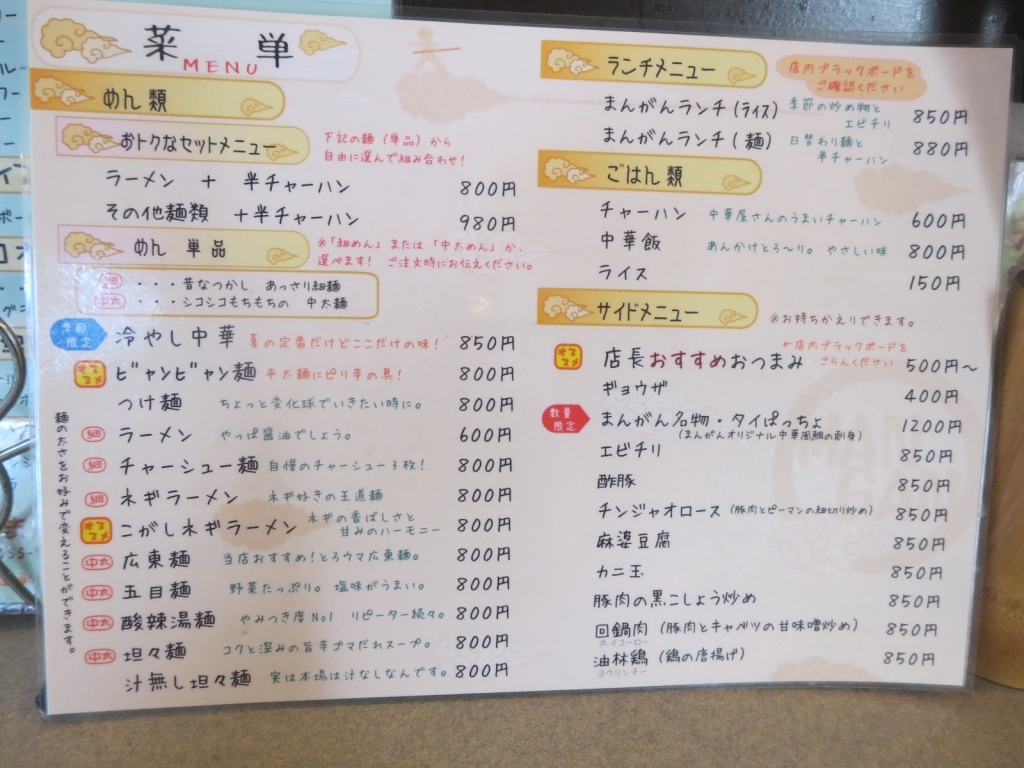 菜単
MENU
めん類
おトクなセットメニュー
下記の麺(単品)から
自由に選んで組み合わせ!
ラーメン + 半チャーハン 800円
その他麺類 +半チャーハン 980円
めん 単品
※「細めん」または「中太めん」か、
選べます! ご注文時にお伝えください。
細 ・・・昔なつかし あっさり細麺
中太 ・・・シコシコもちもちの 中太麺
季節限定 冷やし中華 夏の定番だけどここだけの味! 850円
オススメ ビャンビャン麺 平太麺にピリ辛の具! 800円
つけ麺 ちょっと変化球でいきたい時に。 800円
細 ラーメン やっぱ醤油でしょう。 600円
細 チャーシュー麺 自慢のチャーシュー3枚! 800円
細 ネギラーメン ネギ好きの王道麺 800円
オススメ こがしネギラーメン ネギの香ばしさと
甘みのハーモニー 800円
中太 広東麺 当店おすすめ!とろウマ広東麺。 800円
中太 五目麺 野菜たっぷり。 塩味がうまい。 800円
中太 酸辣湯麺 やみつき度No1 リピーター続々。 800円
中太 坦々麺 コクと深みの旨辛ゴマだれスープ。 800円
汁無し坦々麺 実は本場は汁なしなんです。 800円
麺の太さをお好みで変えることができます。
ランチメニュー
店内ブラックボードを
ご確認ください
まんがんランチ(ライス) 季節の炒め物と
エビチリ 850円
まんがんランチ(麺) 日替わり麺と
半チャーハン 880円
ごはん類
チャーハン 中華屋さんのうまいチャーハン 600円
中華飯 あんかけとろ〜り。 やさしい味 800円
ライス 150円
サイドメニュー
※お持ちかえりできます。
オススメ 店長おすすめおつまみ ←店内ブラックボードを
ごらんください 500円〜
ギョウザ 400円
数量限定 まんがん名物・タイぱっちょ 1200円
(まんがんオリジナル中華風鯛の刺身)
エビチリ 850円
酢豚 850円
チンジャオロース(豚肉とピーマンの細切り炒め) 850円
麻婆豆腐 850円
カニ玉 850円
豚肉の黒こしょう炒め 850円
回鍋肉(豚肉とキャベツの甘味噌炒め) 850円
ホイコーロー
油林鶏(鶏の唐揚げ) 850円
ヨウリンチー